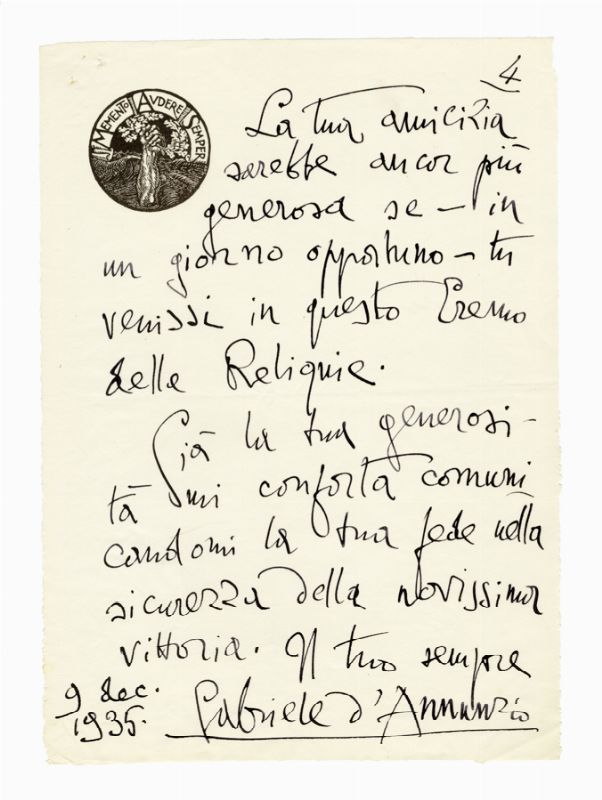 4
MEMENTO AVDERE SEMPER
La tua amicizia
sarebbe ancor più
generosa se — in
un giorno opportuno — tu
venissi in questo Eremo
delle Reliquie.
Già la tua generosi-
tà mi conforta comuni
candomi la tua fede nella
sicurezza della novissima
vittoria. Il tuo sempre
9 dec.
1935. Gabriele d'Annunzio